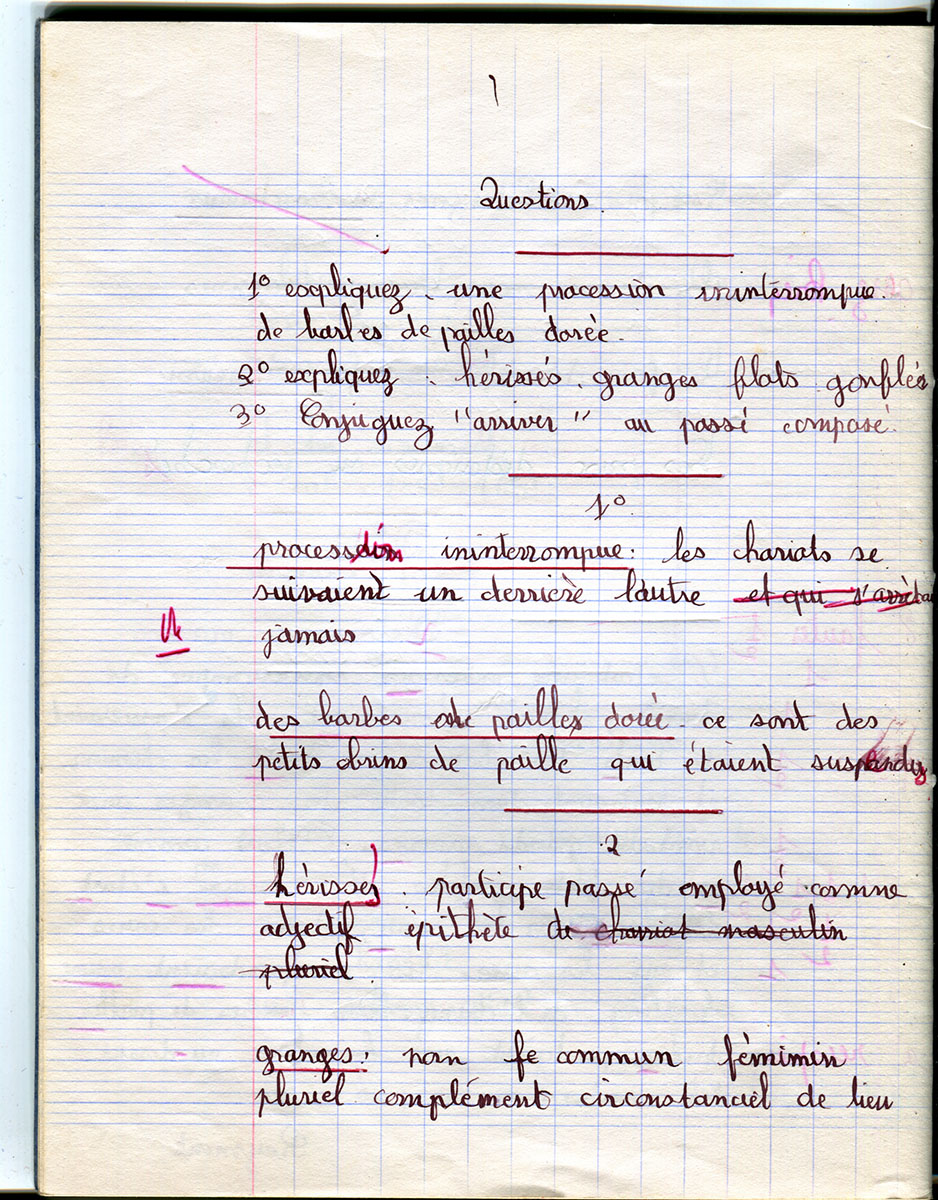 1
Questions.
1º excpliquez. une procession ininterrompue.
de barbes de pailles dorée.
2º expliquez. hérissés. granges flats gonflés
3º Conjuguez "arriver" au passé composé.
1º
procession ininterrompue: les chariots se
suivaient un derrière l'autre et qui s'arrêtai
jamais
des barbes de pailles dorée. ce sont des
petits brins de paille qui étaient suspendus
2
hérissés. participe passé employé comme
adjectif épithète de chariot masculin
pluriel.
granges: nom fe commun féminin
pluriel complément circonstanciel de lieu